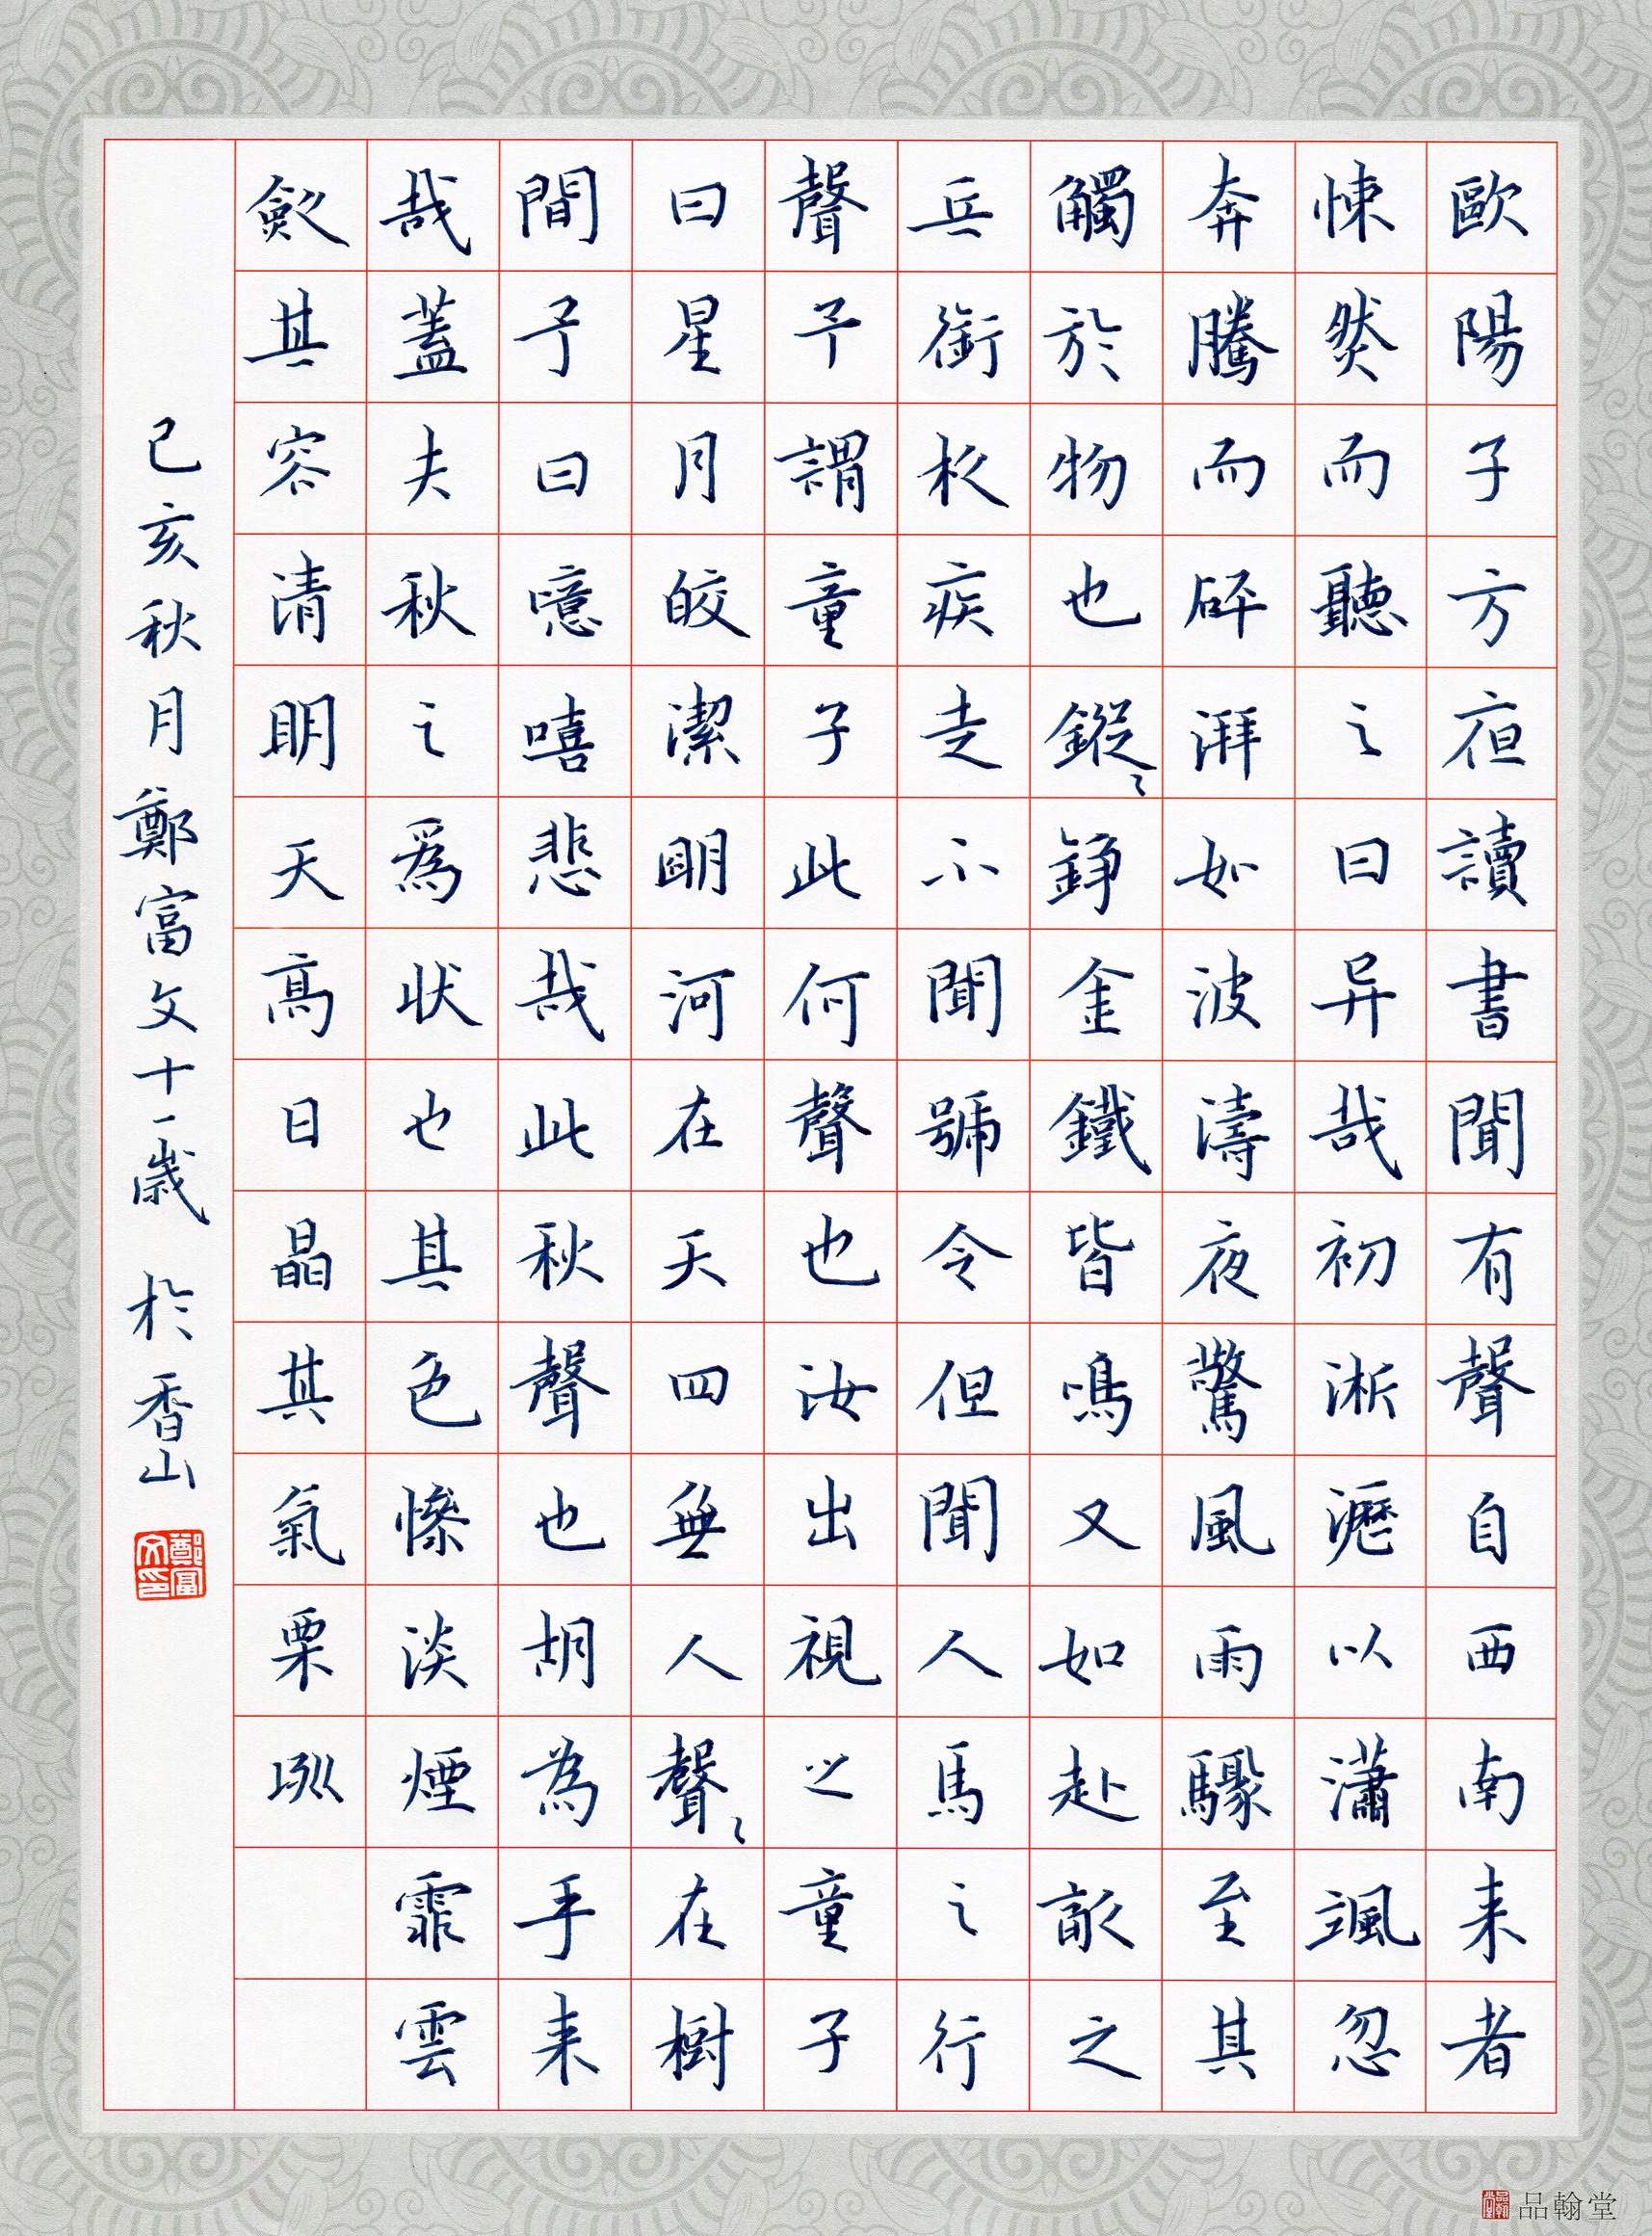 歐陽子方夜讀書聞有聲自西南来者
悚然而聽之曰异哉初淅瀝以瀟颯忽
奔騰而砰湃如波濤夜驚風雨驟至其
觸於物也鏦〻錚金鐵皆鳴又如赴敵之
兵銜枚疾走不聞號令但聞人馬之行
聲予謂童子此何聲也汝出視之童子
曰星月皎潔明河在天四無人聲〻在樹
間予曰噫嘻悲哉此秋聲也胡為乎来
哉蓋夫秋之爲狀也其色慘淡煙霏雲
斂其容清明天高日晶其氣栗冽
己亥秋月鄭富文十一歲 於香山
鄭富文印
品翰堂